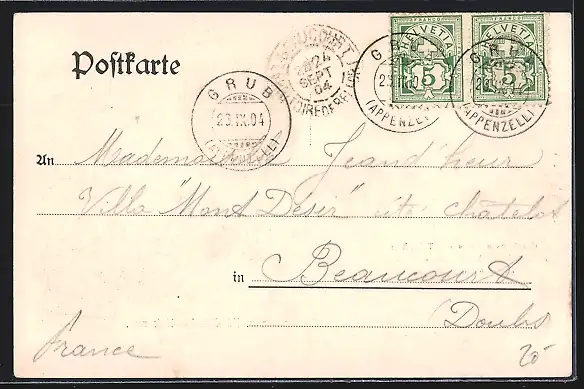 Postkarte
FRANCO FRANCO
HELVETIA HELVETIA
5 5
GRUB
23.IX.04
(APPENZELL)
24
SEPT
04
GRUB
(APPENZELL)
GRUB
(APPENZELL)
An Mademoiselle Jeand'heur
Villa "Mont Desir" cité chatelot
in Beaucourt
(Doubs
France